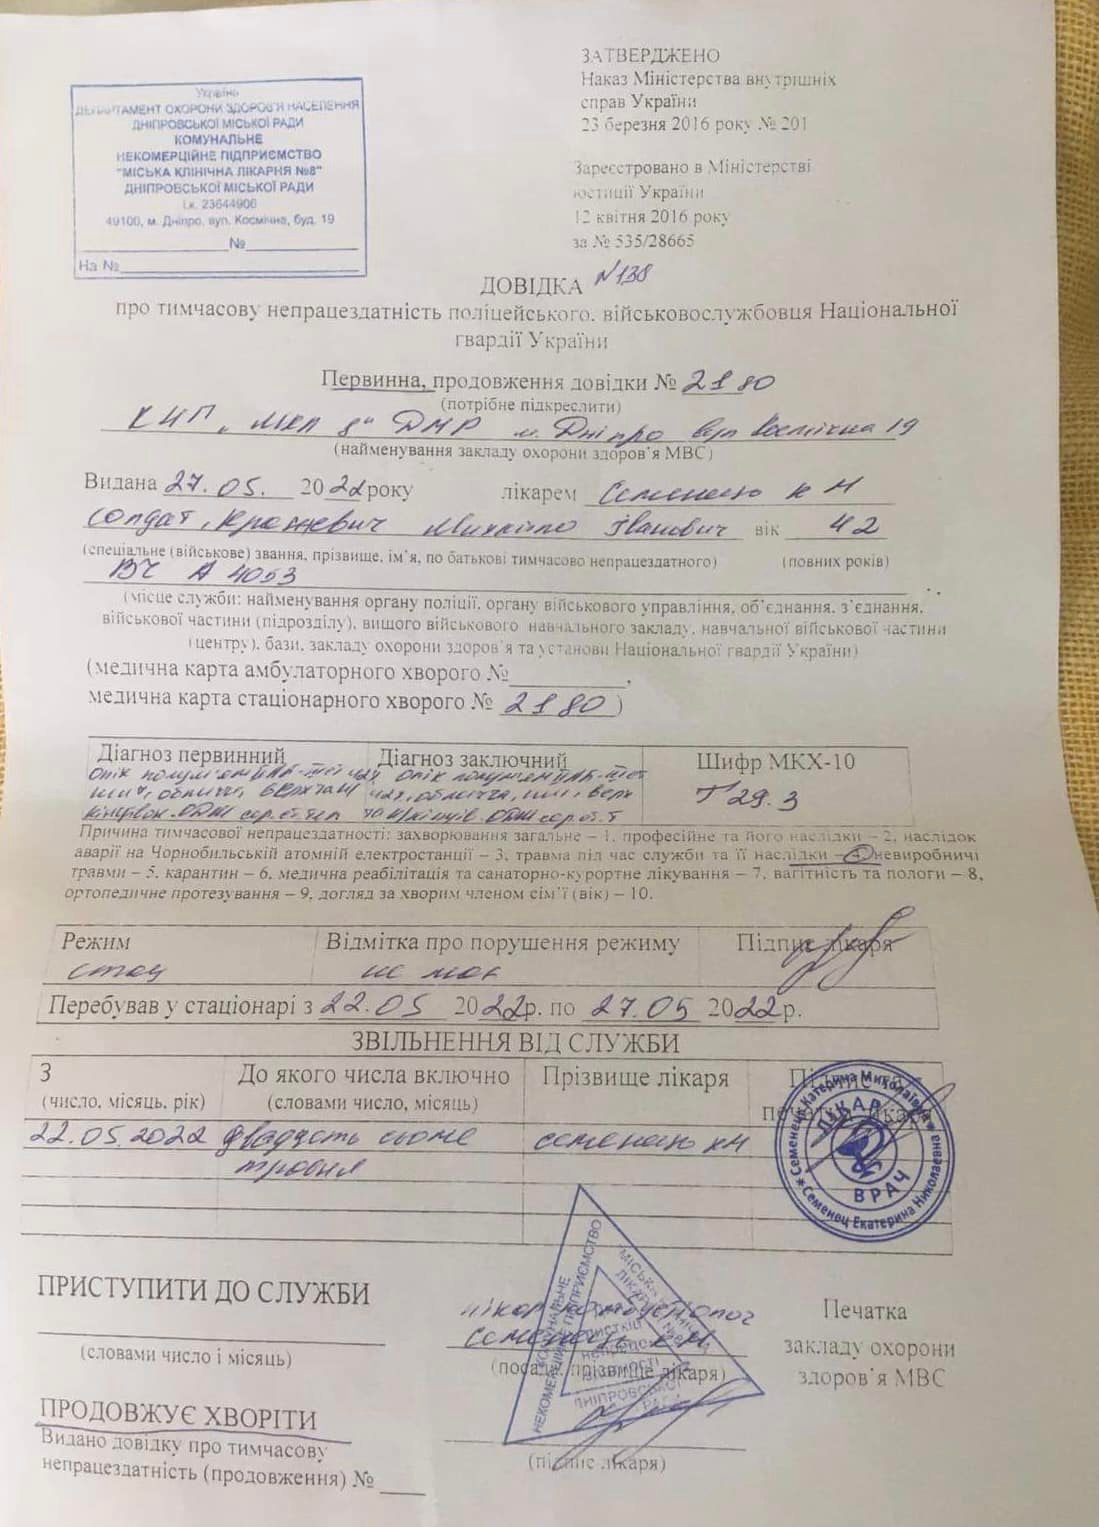 Україна
ДЕПАРТАМЕНТ ОХОРОНИ ЗДОРОВ'Я НАСЕЛЕННЯ
ДНІПРОВСЬКОЇ МІСЬКОЇ РАДИ
КОМУНАЛЬНЕ
НЕКОМЕРЦІЙНЕ ПІДПРИЄМСТВО
"МІСЬКА КЛІНІЧНА ЛІКАРНЯ №8"
ДНІПРОВСЬКОЇ МІСЬКОЇ РАДИ
і.к. 23644906
49100, м. Дніпро, вул. Космічна, буд. 19
№
На №
ЗАТВЕРДЖЕНО
Наказ Міністерства внутрішніх
справ України
23 березня 2016 року № 201
Зареєстровано в Міністерстві
юстиції України
12 квітня 2016 року
за № 535/28665
ДОВІДКА №138
про тимчасову непрацездатність поліцейського, військовослужбовця Національної
гвардії України
Первинна, продовження довідки № 2180
(потрібне підкреслити)
КНП "МКЛ 8" ДМР м. Дніпро вул Космічна 19
(найменування закладу охорони здоров'я МВС)
Видана 27.05. 2022 року лікарем Семенець К М
солдат, Михайло Іванович вік 42
(спеціальне (військове) звання, прізвище, ім'я, по батькові тимчасово непрацездатного) (повних років)
ВЧ А 4053
(місце служби: найменування органу поліції, органу військового управління, об'єднання, з'єднання,
військової частини (підрозділу), вищого військового навчального закладу, навчальної військової частини
(центру), бази, закладу охорони здоров'я та установи Національної гвардії України)
(медична карта амбулаторного хворого №,
медична карта стаціонарного хворого № 2180)
Діагноз первинний Діагноз заключний Шифр МКХ-10
опік полум'ям опік полум'ям Т 29.3
шиї, обличчя, обличчя, шиї, верх
Причина тимчасової непрацездатності: захворювання загальне – 1, професійне та його наслідки – 2, наслідок
аварії на Чорнобильській атомній електростанції – 3, травма під час служби та її наслідки – 4, невиробничі
травми – 5, карантин – 6, медична реабілітація та санаторно-курортне лікування – 7, вагітність та пологи – 8,
ортопедичне протезування – 9, догляд за хворим членом сім'ї (вік) – 10.
Режим Відмітка про порушення режиму Підпис лікаря
стац не має
Перебував у стаціонарі з 22.05 2022р. по 27.05 2022р.
ЗВІЛЬНЕННЯ ВІД СЛУЖБИ
З До якого числа включно Прізвище лікаря Підпис та
(число, місяць, рік) (словами число, місяць) печатка лікаря
22.05.2022 двадцять сьоме Семенець КМ
травня
Семенець Катерина Миколаївна
ЛІКАР
ВРАЧ
Семенец Екатерина Николаевна
ПРИСТУПИТИ ДО СЛУЖБИ
(словами число і місяць)
лікар комбустіолог
Семенець К М
(посада, прізвище лікаря)
КОМУНАЛЬНЕ
НЕКОМЕРЦІЙНЕ ПІДПРИЄМСТВО
ДНІПРОВСЬКОЇ
Печатка
закладу охорони
здоров'я МВС
ПРОДОВЖУЄ ХВОРІТИ
Видано довідку про тимчасову
непрацездатність (продовження) №
(підпис лікаря)